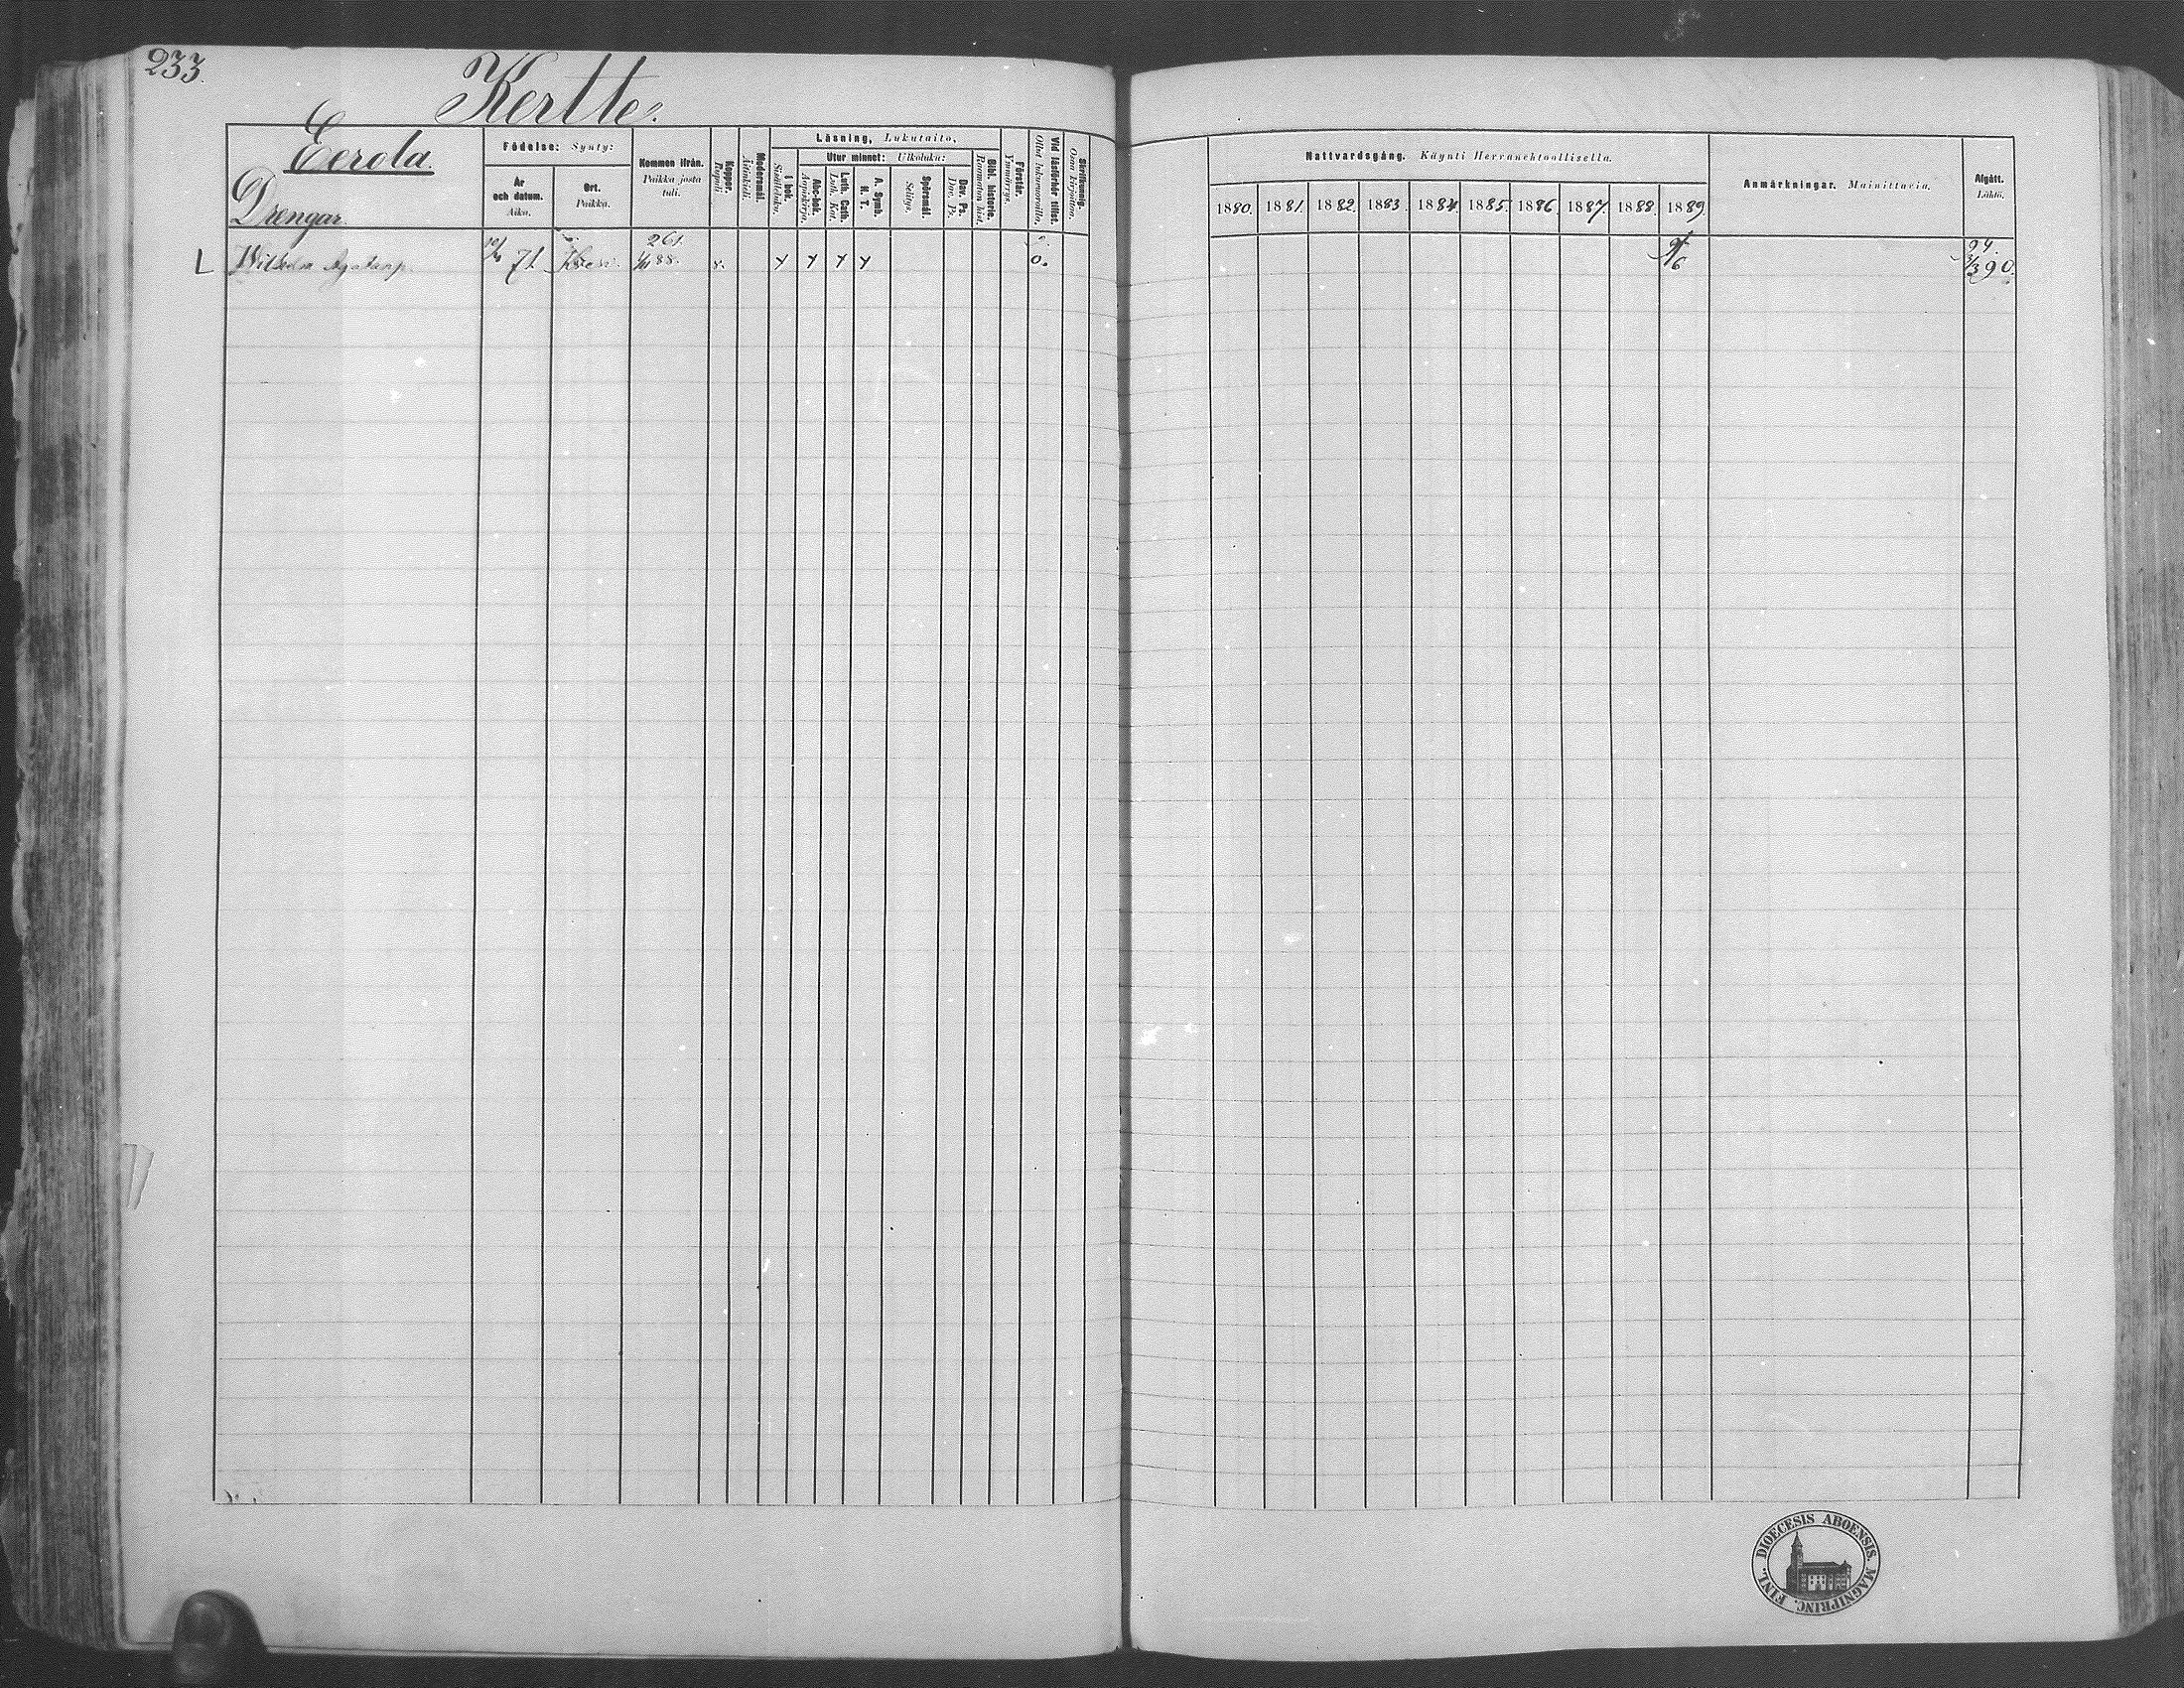 233.
Kertte.
Eerola.
Drengar.
Födelse: Synty:
År och datum. Aika.
Ort. Paikka.
Kommen ifrån. Paikka josta tuli.
Koppor. Rupuli.
Modersmål. Äitinkieli.
Läsning, Lukutaito,
I bok. Sisältluku.
Utur minnet: Ulkoluku:
Abc-bok. Aapiskirja.
Luth. Cath. Luth. Kat.
A. Symb. H. T.
Spörsmål. Selitys.
Dav. Ps. Dav. Ps.
Bibl. historie. Raamatun hist.
Förstår. Ymmärrys.
Vid läsförhör tillst. Ollut lukuvuoroilla.
Skrifkunnig. Osaa kirjoittaa.
Nattvardsgång. Käynti Herranehtoollisella.
1880. 1881. 1882. 1883. 1884. 1885. 1886. 1887. 1888. 1889
Anmärkningar. Mainittavia.
Afgått. Lähtö.
261. 94.
L Wilhelm 71 88. 8. 0. 9/6 90.
DIOECESIS ABOENSIS. MAGNIPRINC. FINL.